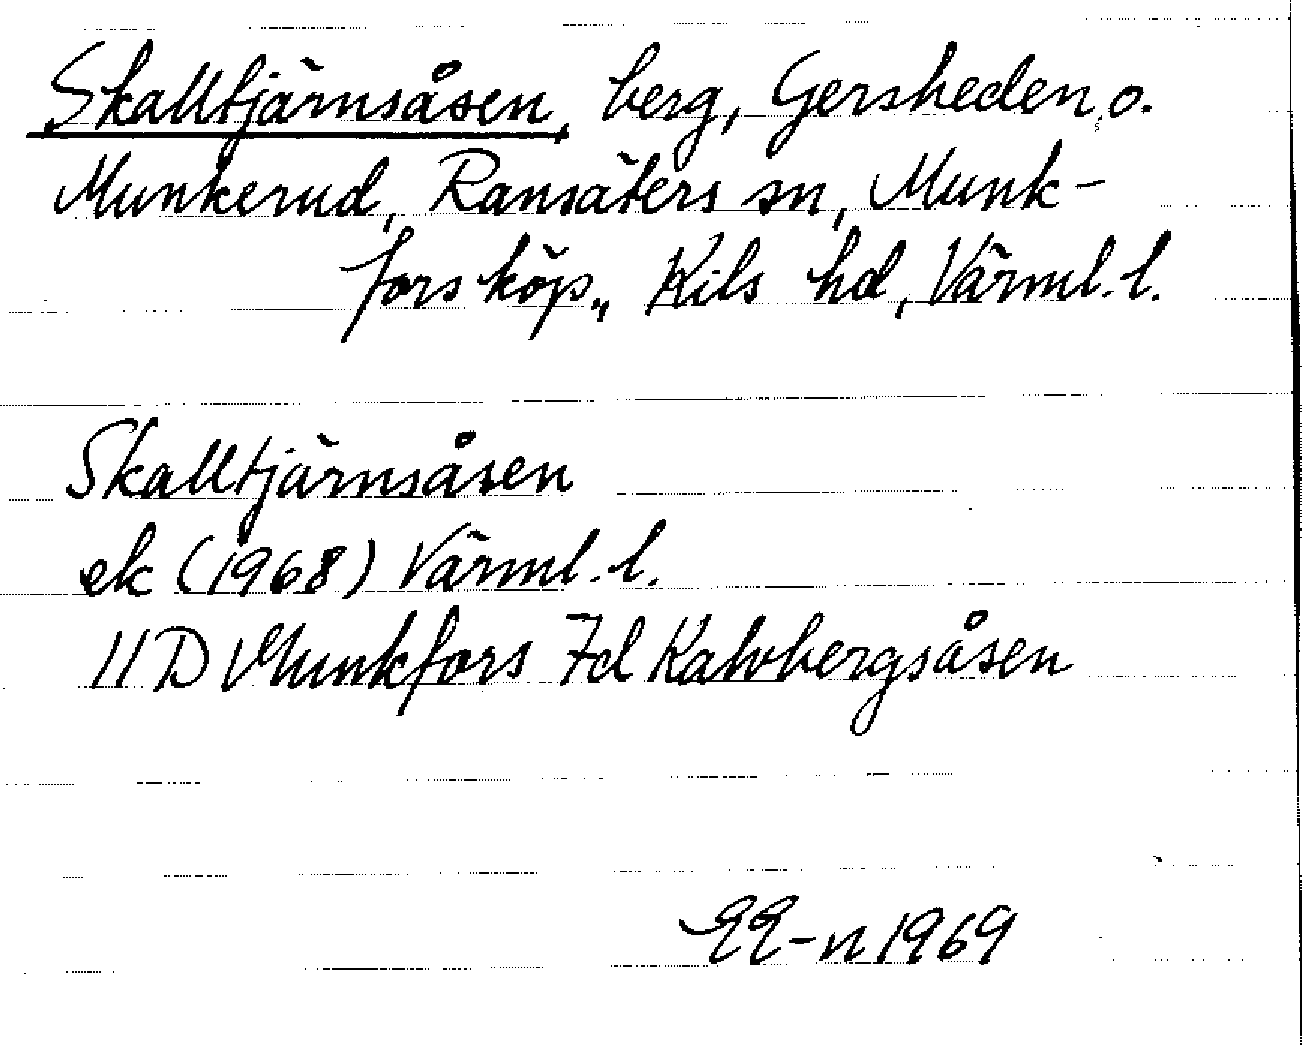 Skalltjärnsåsen, berg, Gersheden, o.
Munkerud, Ransäters sn, Munk-
fors köp., Kils hd, Värml. l.
Skalltjärnsåsen
ek (1968) Värml. l.
11D Munkfors 7d Kalvbergsåsen
EE-n 1969